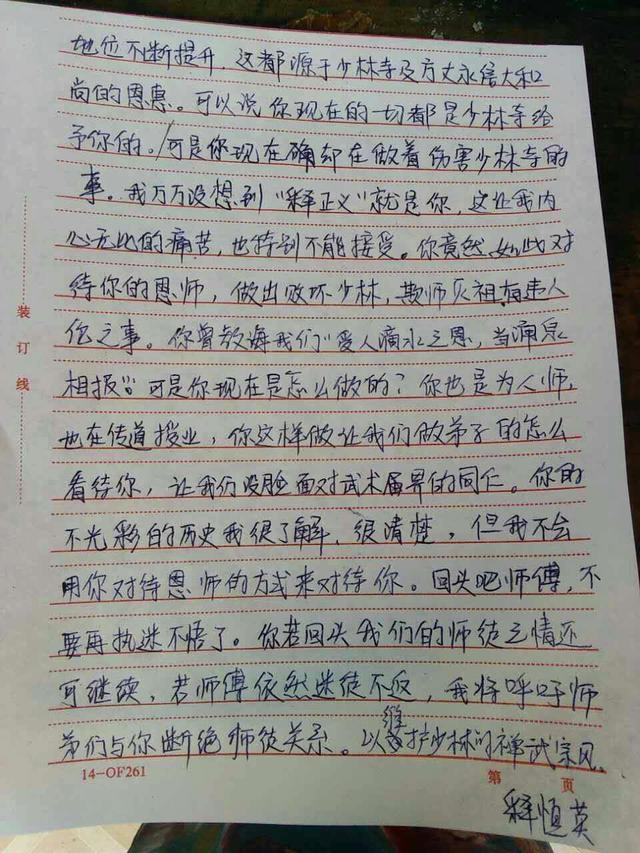 地位不断提升，这都源于少林寺及方丈永信大和
尚的恩惠。可以说你现在的一切都是少林寺给
予你的。可是你现在确却在做着伤害少林寺的
事。我万万没想到“释正义”就是你，这让我内
心无比的痛苦，也特别不能接受。你竟然如此对
待你的恩师，做出败坏少林，欺师灭祖有违人
伦之事。你曾教诲我们“爱人滴水之恩，当涌泉
相报”可是你现在是怎么做的？你也是为人师，
也在传道授业，你这样做让我们做弟子的怎么
看待你，让我们没脸面对武术届界的同仁。你的
不光彩的历史我很了解，很清楚，但我不会
用你对待恩师的方式来对待你。回头吧师傅，不
要再执迷不悟了。你若回头我们的师徒之情还
可继续，若师傅依然迷徒不返，我将呼吁师
弟们与你断绝师徒关系。以维护少林的禅武宗风。
14-OF261
第 页
释恒英
装订线